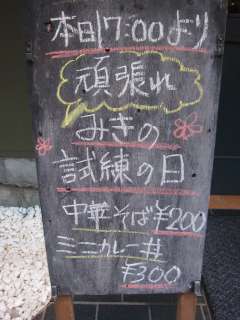 本日17:00より
頑張れ
みきの
試練の日
中華そば¥200
ミニカレー丼
¥300